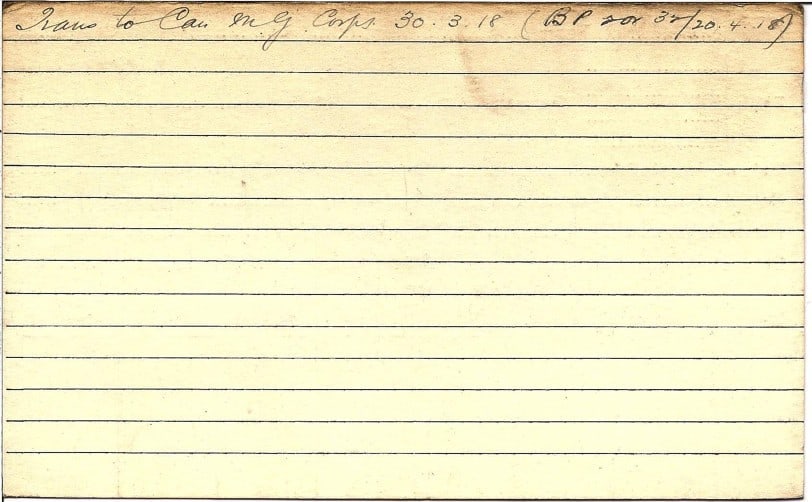 Trans to Can M G Corps. 30.3.18 (BP 20r 32/20.4.18)